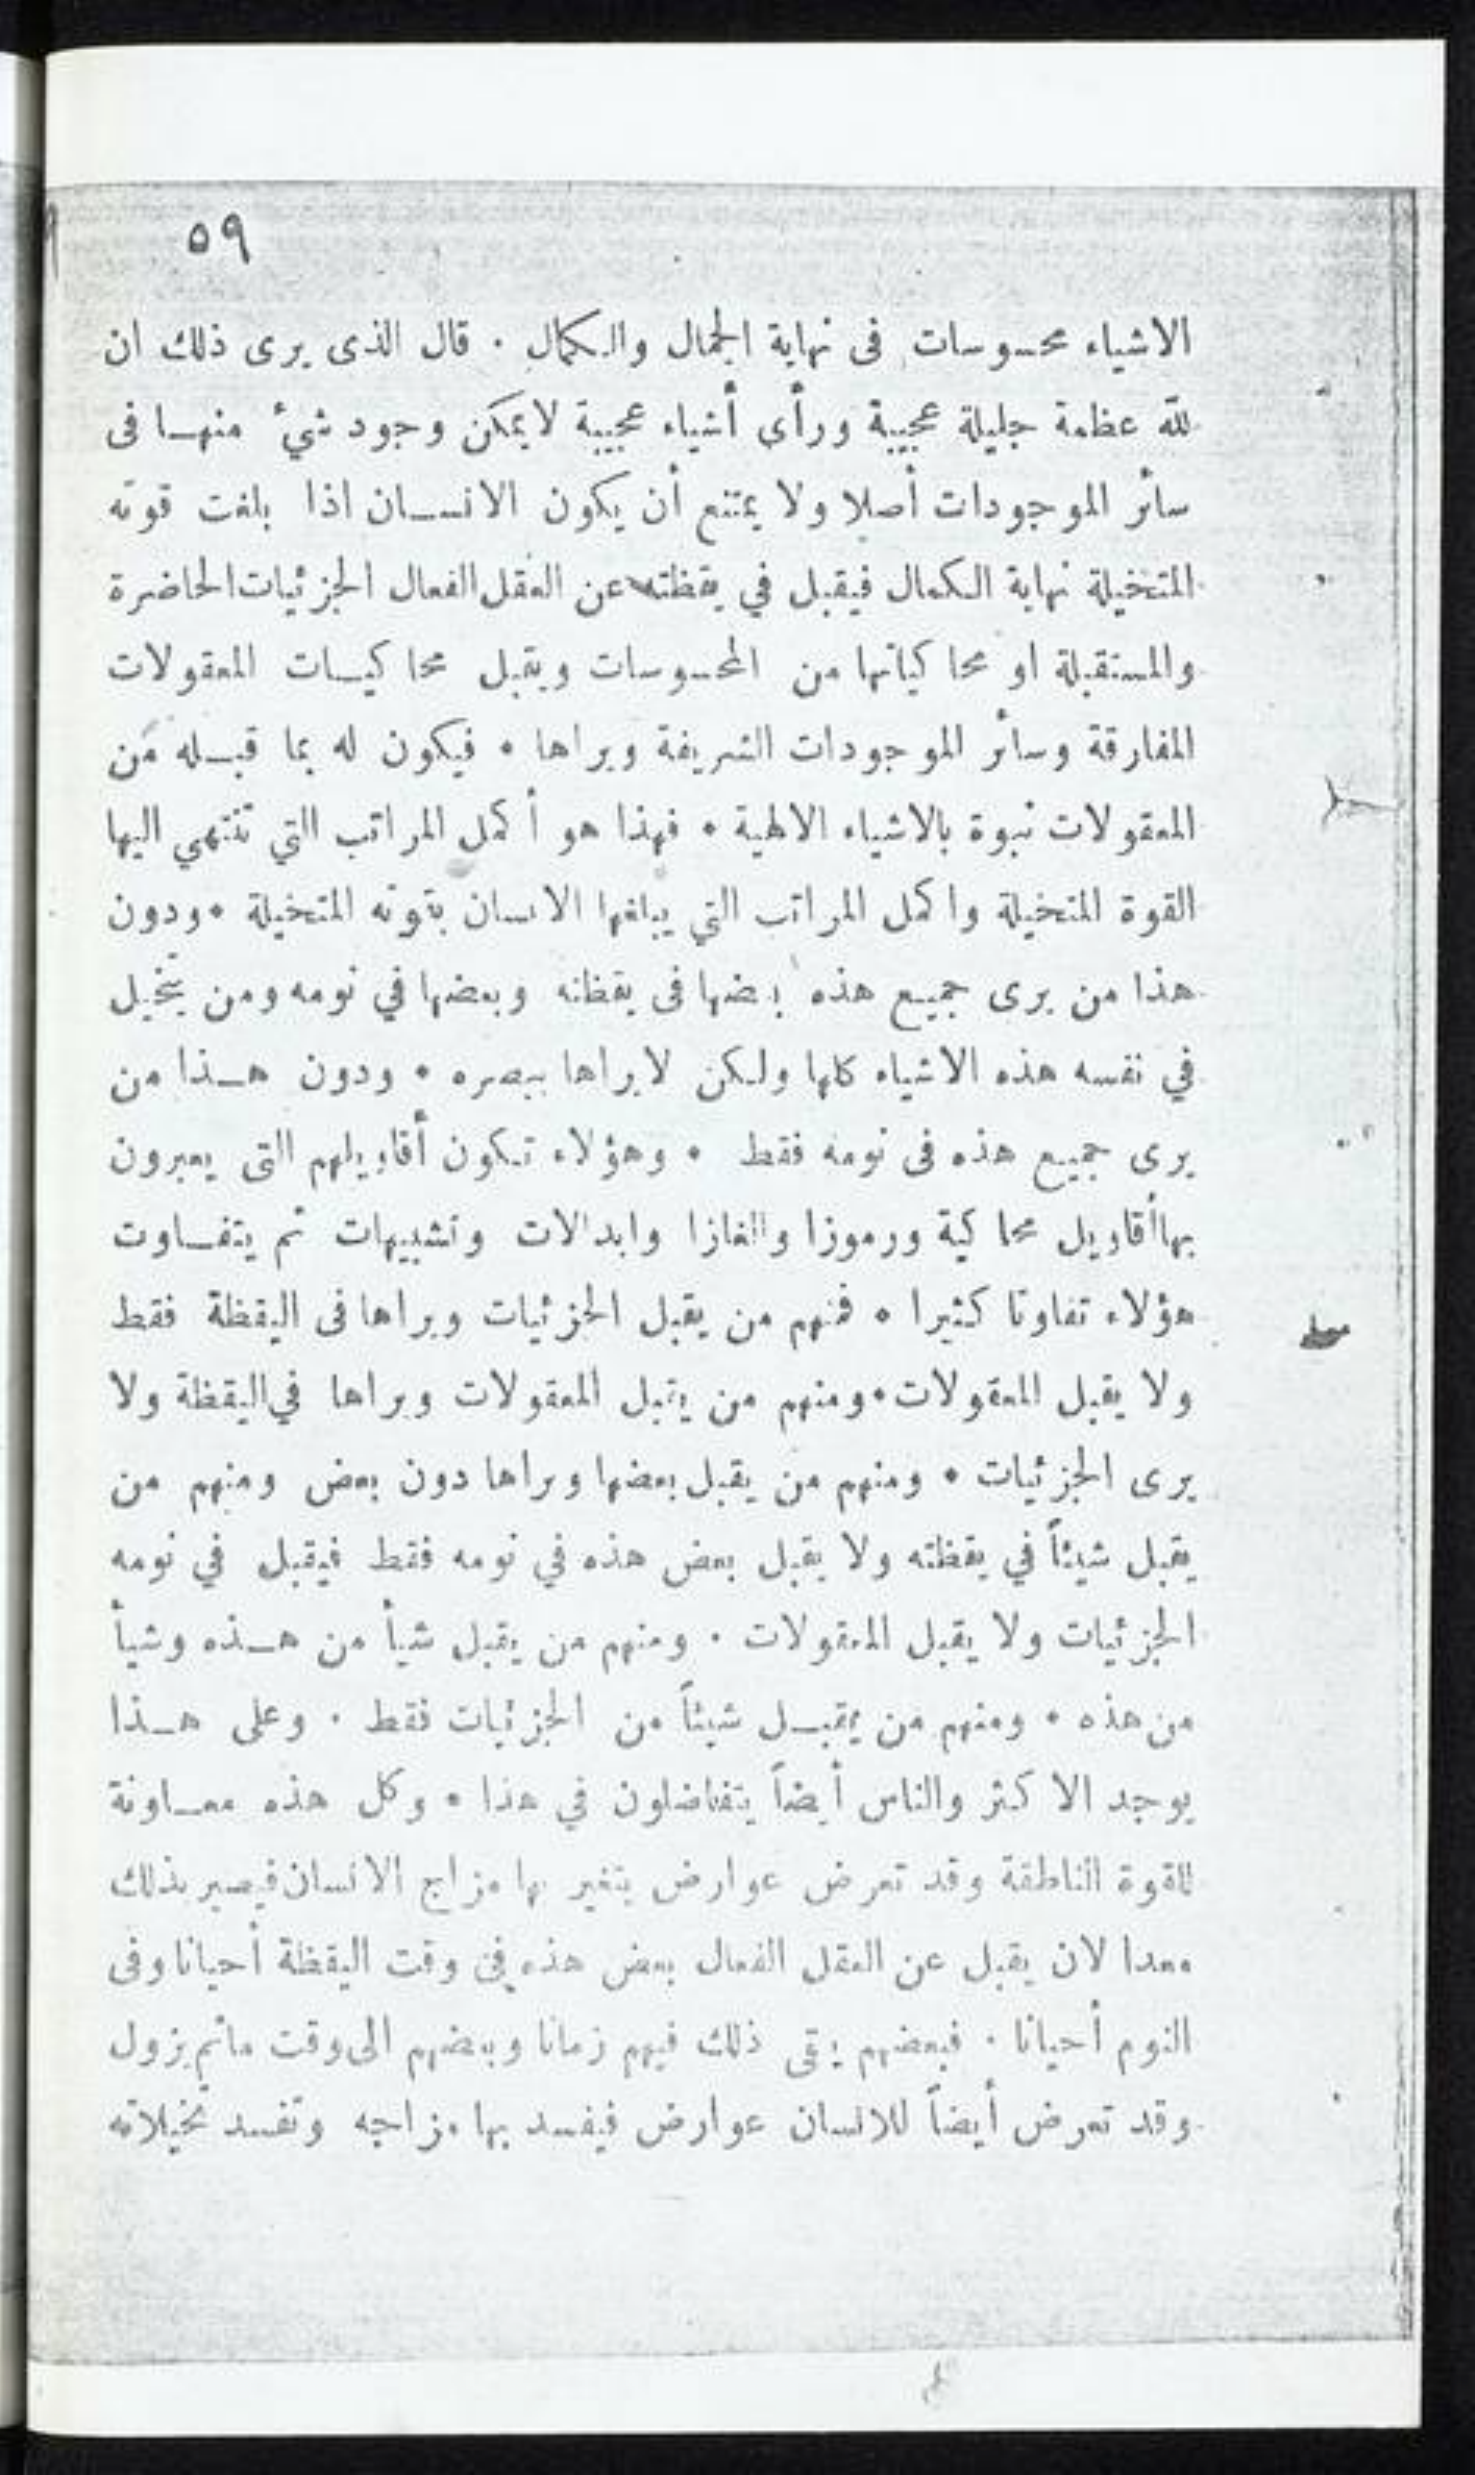 ٥٩
الاشياء محسوسات فى نهاية الجمال والكمال · قال الذى يرى ذلك ان
لله عظمة جليلة عجيبة ورأى أشياء عجيبة لايمكن وجود شئ منها فى
سائر الموجودات أصلا ولا يمتنع أن يكون الانسان اذا بلغت قوته
المتخيلة نهاية الكمال فيقبل في يقظته عن العقل الفعال الجزئيات الحاضرة
والمستقبلة او محاكياتها من المحسوسات ويقبل محاكيات المعقولات
المفارقة وسائر الموجودات الشريفة ويراها • فيكون له بما قبله من
المعقولات نبوة بالاشياء الالهية • فهذا هو أكمل المراتب التي تنتهي اليها
القوة المتخيلة واكمل المراتب التي يبلغها الانسان بقوته المتخيلة • ودون
هذا من يرى جميع هذه بعضها فى يقظته وبعضها في نومه ومن يتخيل
في نفسه هذه الاشياء كلها ولكن لايراها ببصره • ودون هذا من
يرى جميع هذه فى نومه فقط • وهؤلاء تكون أقاويلهم التى يعبرون
بهاأقاويل محاكية ورموزا والغازا وابدالات وتشبيهات ثم يتفاوت
هؤلاء تفاوتا كثيرا • فمنهم من يقبل الجزئيات ويراها فى اليقظة فقط
ولا يقبل المعقولات • ومنهم من يقبل المعقولات ويراها في اليقظة ولا
يرى الجزئيات • ومنهم من يقبل بعضها ويراها دون بعض ومنهم من
يقبل شيئاً في يقظته ولا يقبل بعض هذه في نومه فقط فيقبل في نومه
الجزئيات ولا يقبل المعقولات · ومنهم من يقبل شيأ من هذه وشيأ
من هذه • ومنهم من يقبل شيئاً من الجزئيات فقط · وعلى هذا
يوجد الاكثر والناس أيضاً يتفاضلون في هذا • وكل هذه معاونة
للقوة الناطقة وقد تعرض عوارض يتغير بها مزاج الانسان فيصير بذلك
معدا لان يقبل عن العقل الفعال بعض هذه في وقت اليقظة أحيانا وفى
النوم أحيانا · فبعضهم يبقى ذلك فيهم زمانا وبعضهم الى وقت ماثم يزول
وقد تعرض أيضاً للانسان عوارض فيفسد بها مزاجه وتفسد تخيلاته